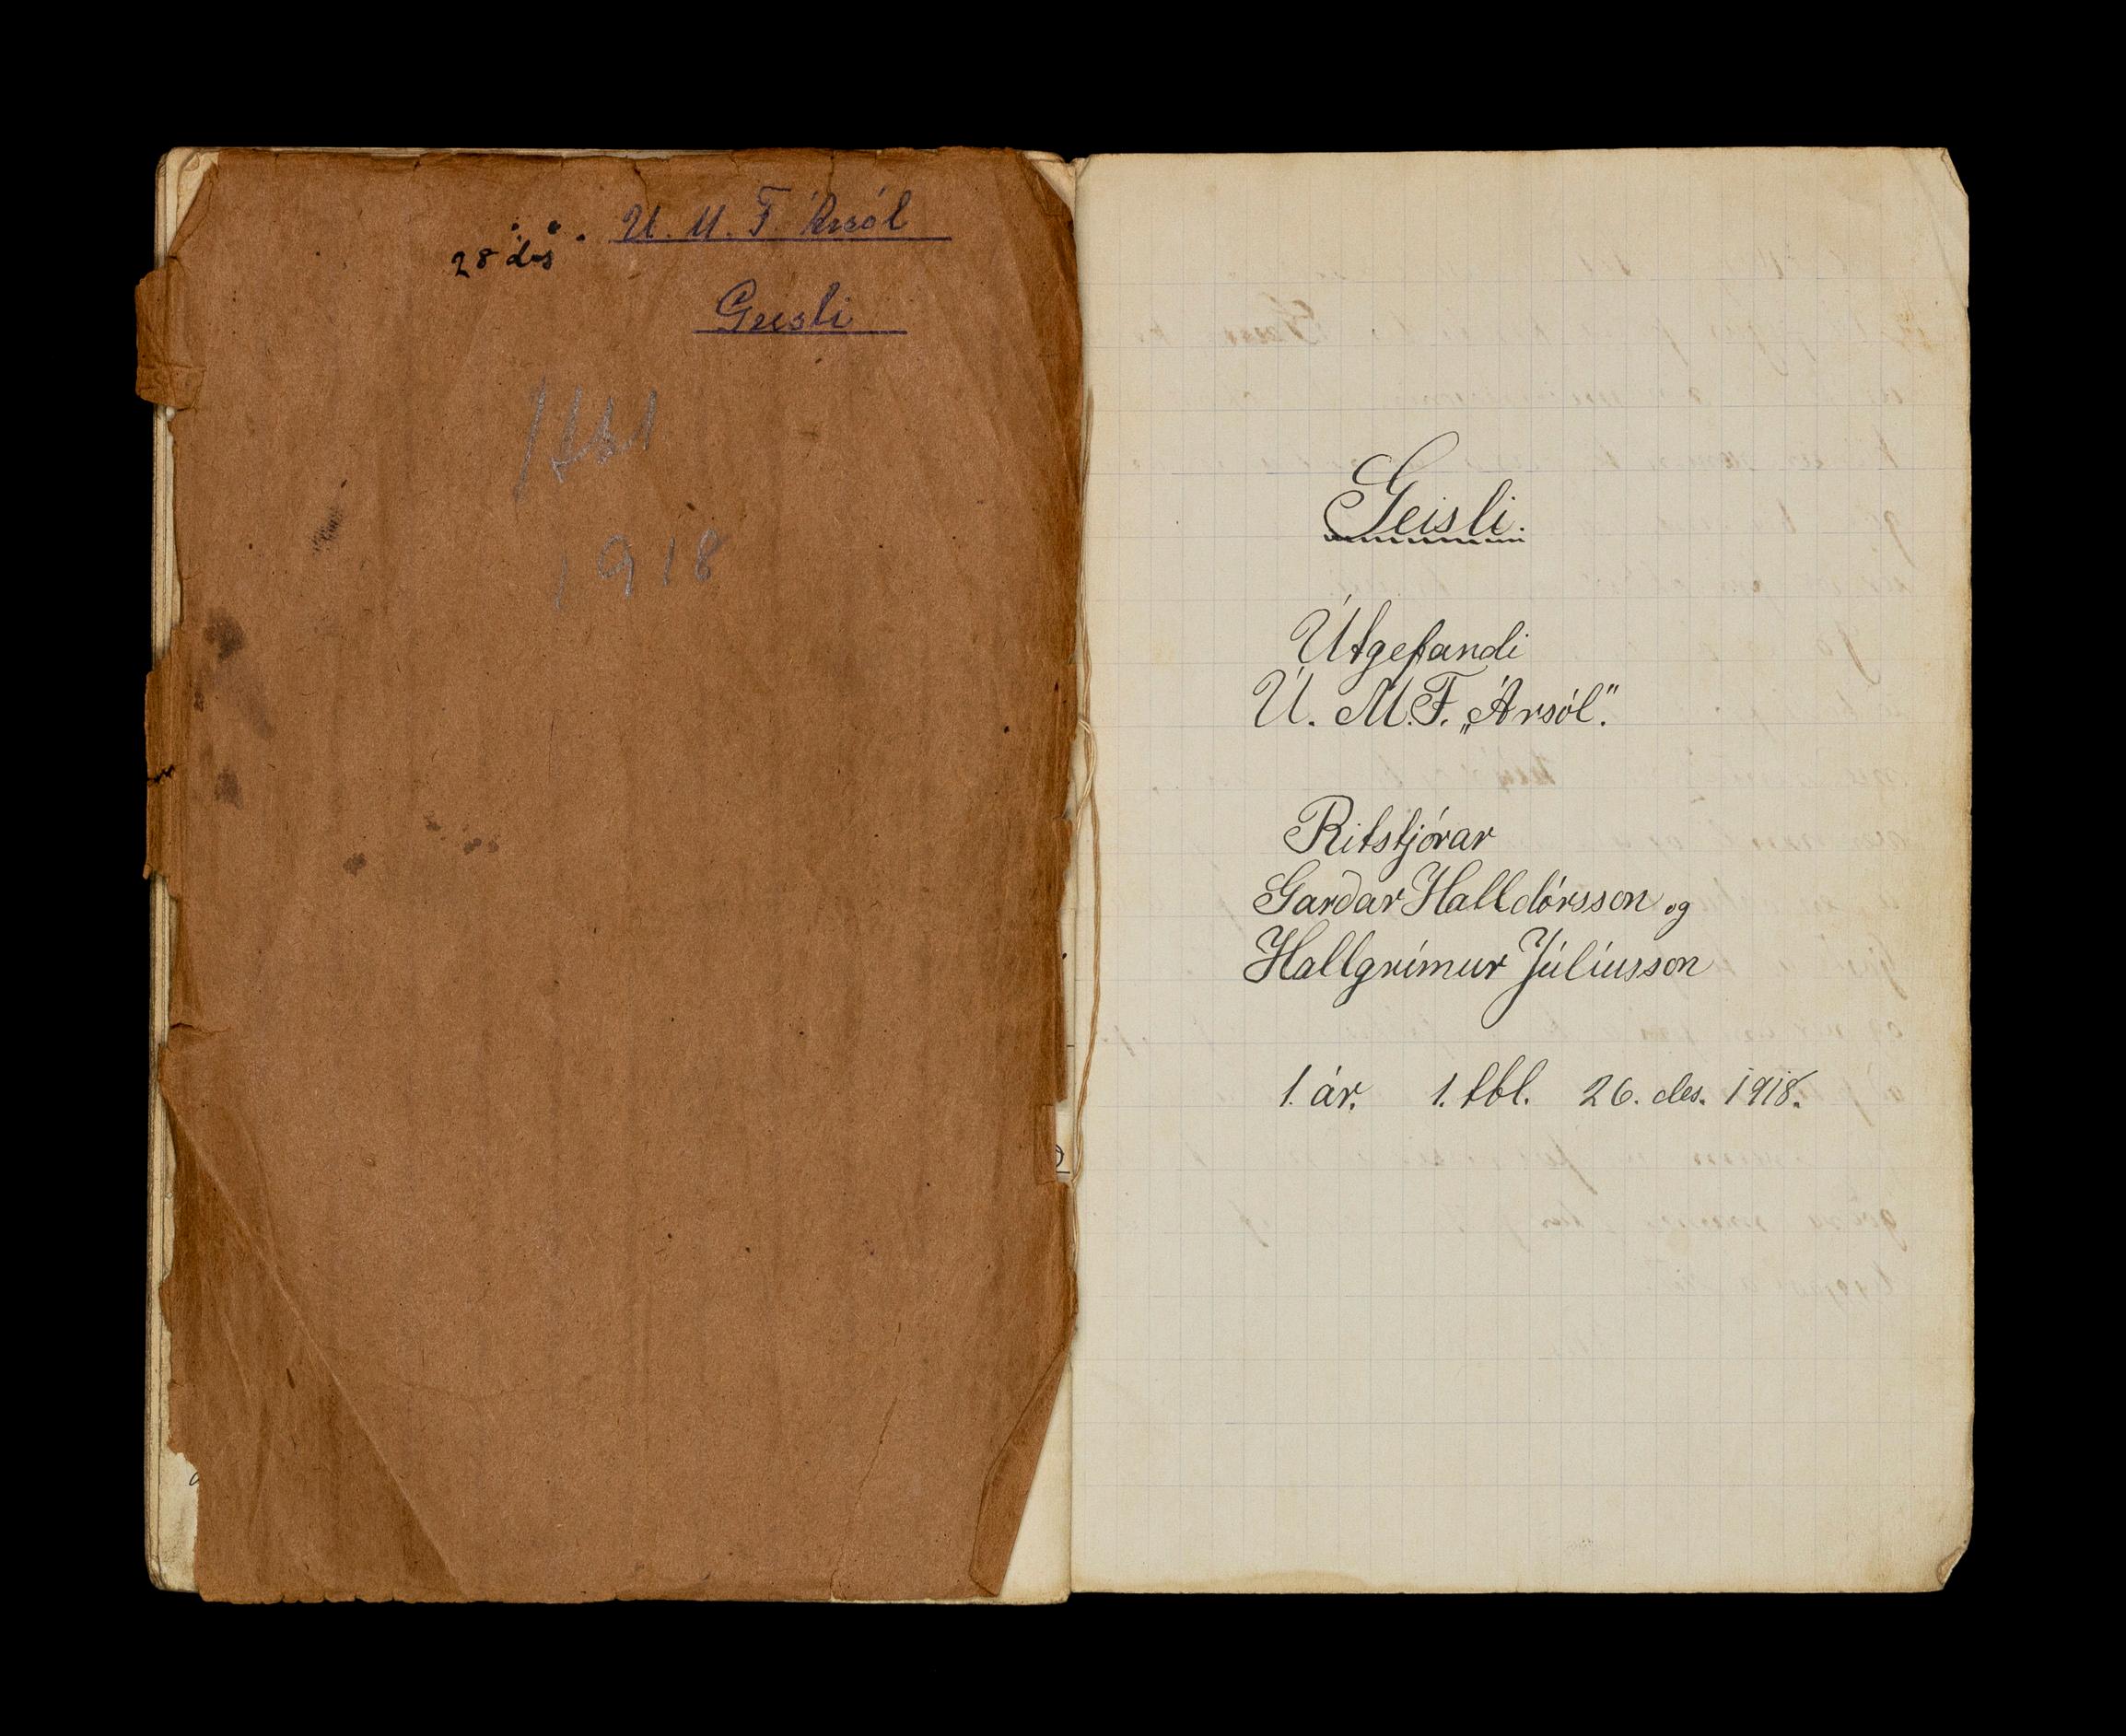 U. M. F. Ársól
28 des
Geisli
1 tbl
1918
Geisli.
Útgefandi
U. M. F. „Ársól".
Ritstjórar
Gardar Halldórsson og
Hallgrímur Júlíusson
1. ár. 1. tbl. 26. des. 1918.